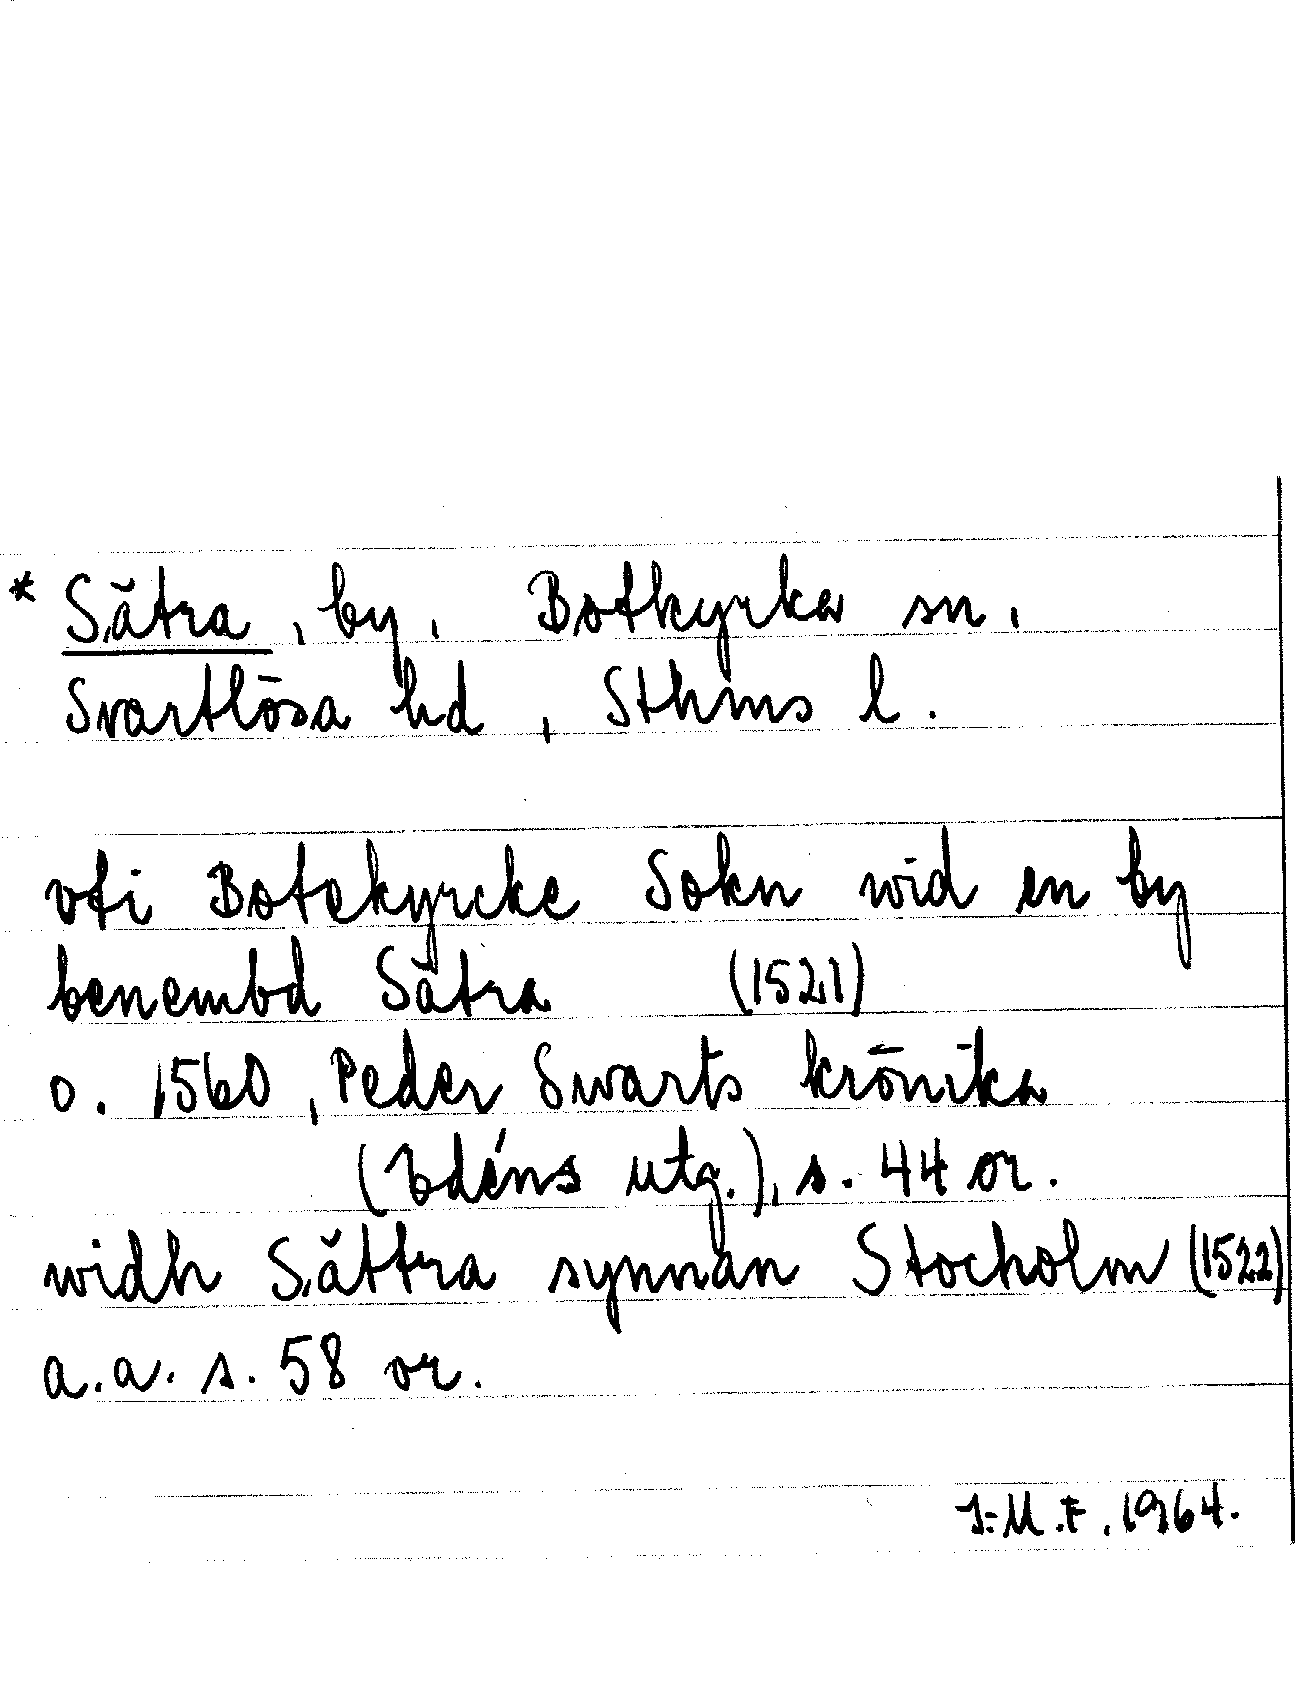 * Sätra, by, Botkyrka sn,
Svartlösa hd, Sthms l.
vti Botekyrcke Sokn wid en by
benembd Sätra (1521)
o. 1560, Peder Swarts krönika
(Edéns utg.), s. 44 or.
widh Sättra synnan Stocholm (1522)
a.a. s. 58 or.
I-M.F. 1964.